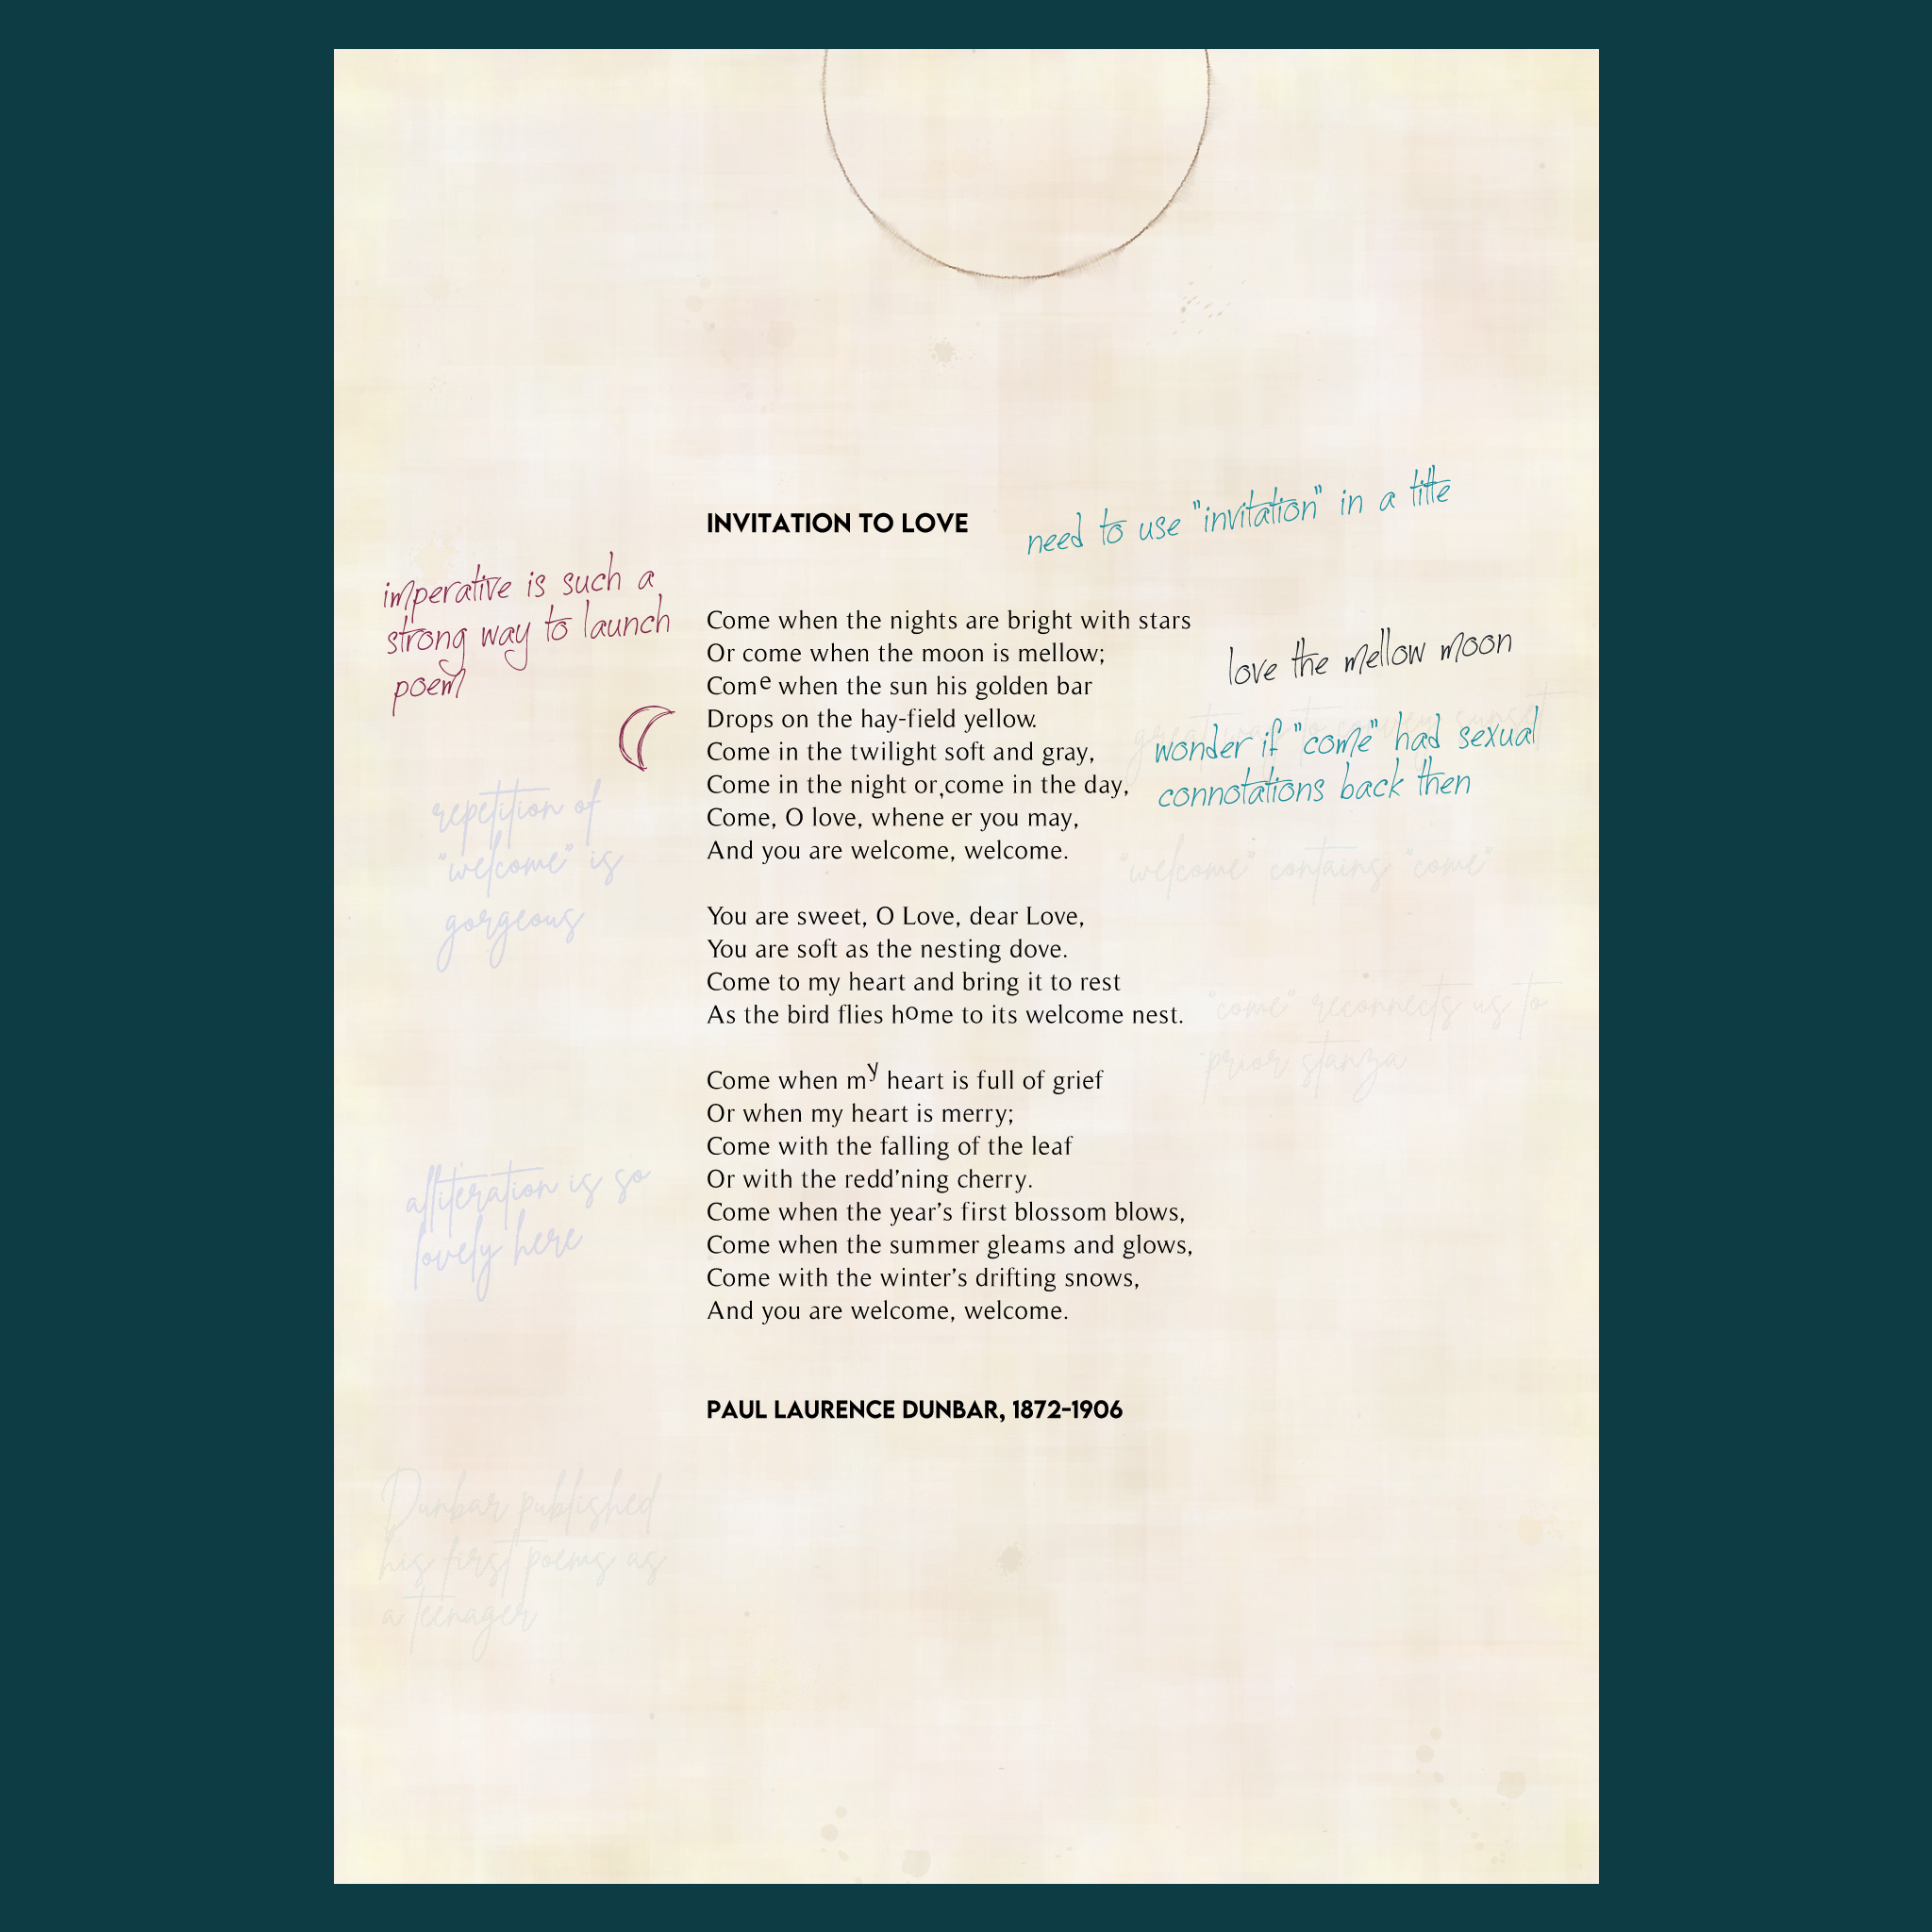 INVITATION TO LOVE
need to use "invitation" in a title
imperative is such a
strong way to launch
poem
Come when the nights are bright with stars
Or come when the moon is mellow;
Come when the sun his golden bar
Drops on the hay-field yellow.
Come in the twilight soft and gray,
Come in the night or,come in the day,
Come, O love, whene er you may,
And you are welcome, welcome.
love the mellow moon
great way to convey sunset
wonder if "come" had sexual
connotations back then
repetition of
"welcome" is
gorgeous
"welcome" contains "come"
You are sweet, O Love, dear Love,
You are soft as the nesting dove.
Come to my heart and bring it to rest
As the bird flies home to its welcome nest.
"come" reconnects us to
prior stanza
Come when my heart is full of grief
Or when my heart is merry;
Come with the falling of the leaf
Or with the redd’ning cherry.
Come when the year’s first blossom blows,
Come when the summer gleams and glows,
Come with the winter’s drifting snows,
And you are welcome, welcome.
alliteration is so
lovely here
PAUL LAURENCE DUNBAR, 1872-1906
Dunbar published
his first poems as
a teenager